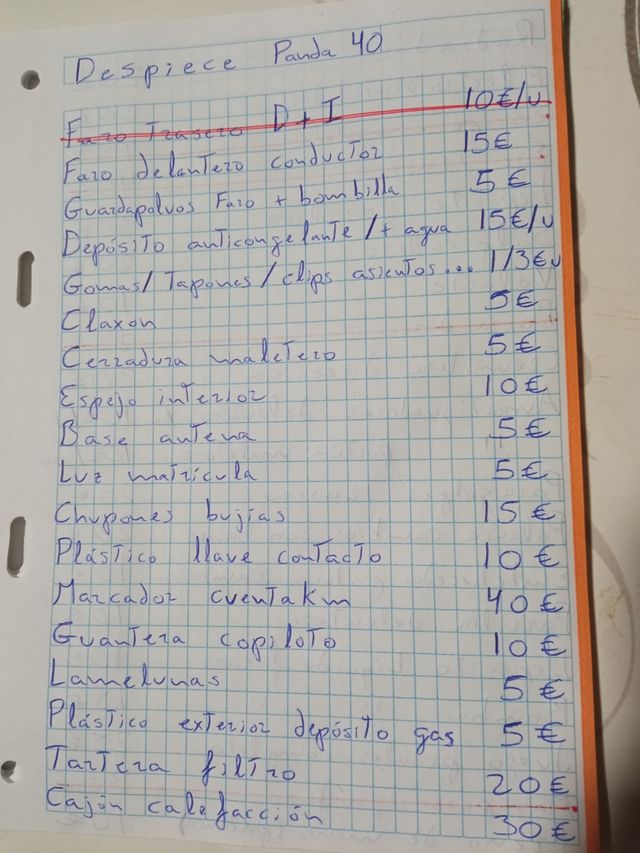 Despiece Panda 40
Faro Trasero D + I 10€/u
Faro delantero conductor 15€
Guardapolvos Faro + bombilla 5€
Depósito anticongelante/+ agua 15€/u
Gomas/Tapones/clips asientos... 1/3€u
Claxon 5€
Cerradura maletero 5€
Espejo interior 10€
Base antena 5€
Luz matrícula 5€
Chupones bujías 15€
Plástico llave contacto 10€
Marcador cuentakm 40€
Guantera copiloto 10€
Lamelunas 5€
Plástico exterior depósito gas 5€
Tartera filtro 20€
Cajón calefacción 30€